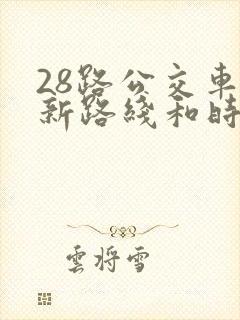 28路公交車
新路綫和時
雲將雪